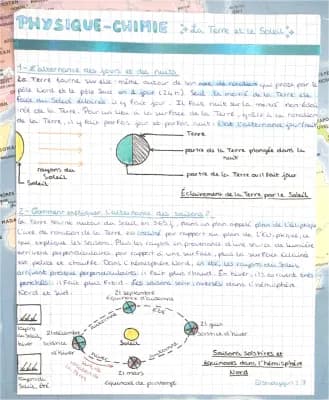 PHYSIQUE-CHIMIE La Terre et le Soleil
1- L'alternance des jours et de nuits
La Terre tourne sur elle-même autour de son axe de rotation qui passe par le
pôle Nord et le pôle Sud en 1 jour (24h). Seul la moitié de la Terre elle
face au Soleil éclairée : il y fait jour. Il fait nuit sur la moitié non éclai
rée de la Terre. Pour un lieu à la surface de la Terre, grâce à sa rotation
de la Terre, il y fait parfois jour et parfois nuit : c'est l'alternance jour/nuit
Terre
partie de la Terre plongée dans la
nuit
rayons du
Soleil
partie de la Terre où il fait jour
Soleil
Éclairement de la Terre par le Soleil
2- Comment expliquer l'alternance des saisons?
La Terre tourne autour du Soleil en 365j, dans un plan appelé plan de l'écliptique
L'axe de rotation de la Terre est incliné par rapport au plan de l'écliptique, ce
qui explique les saisons. Plus les rayons en provenance d'une source de lumière
arrivent perpendiculaires par rapport à une surface, plus la surface éclairée
est petite et chauffée. Dans l'hémisphère Nord, en été, les rayons du Soleil
arrivent presque perpendiculaires : il fait plus chaud. En hiver, ils arrivent très
penchés : il fait plus froid. Les saisons sont inversées dans l'hémisphère
Nord et Sud.
21 septembre
Équinoxe d'automne
AUTOMNE
ÉTÉ
21 décembre
Solstice
d'hiver
Soleil
21 juin
Solstice d'hiver
21 mars
Équinoxe de printemps
Saisons, solstices et
équinoxes dans l'hémisphère
Nord